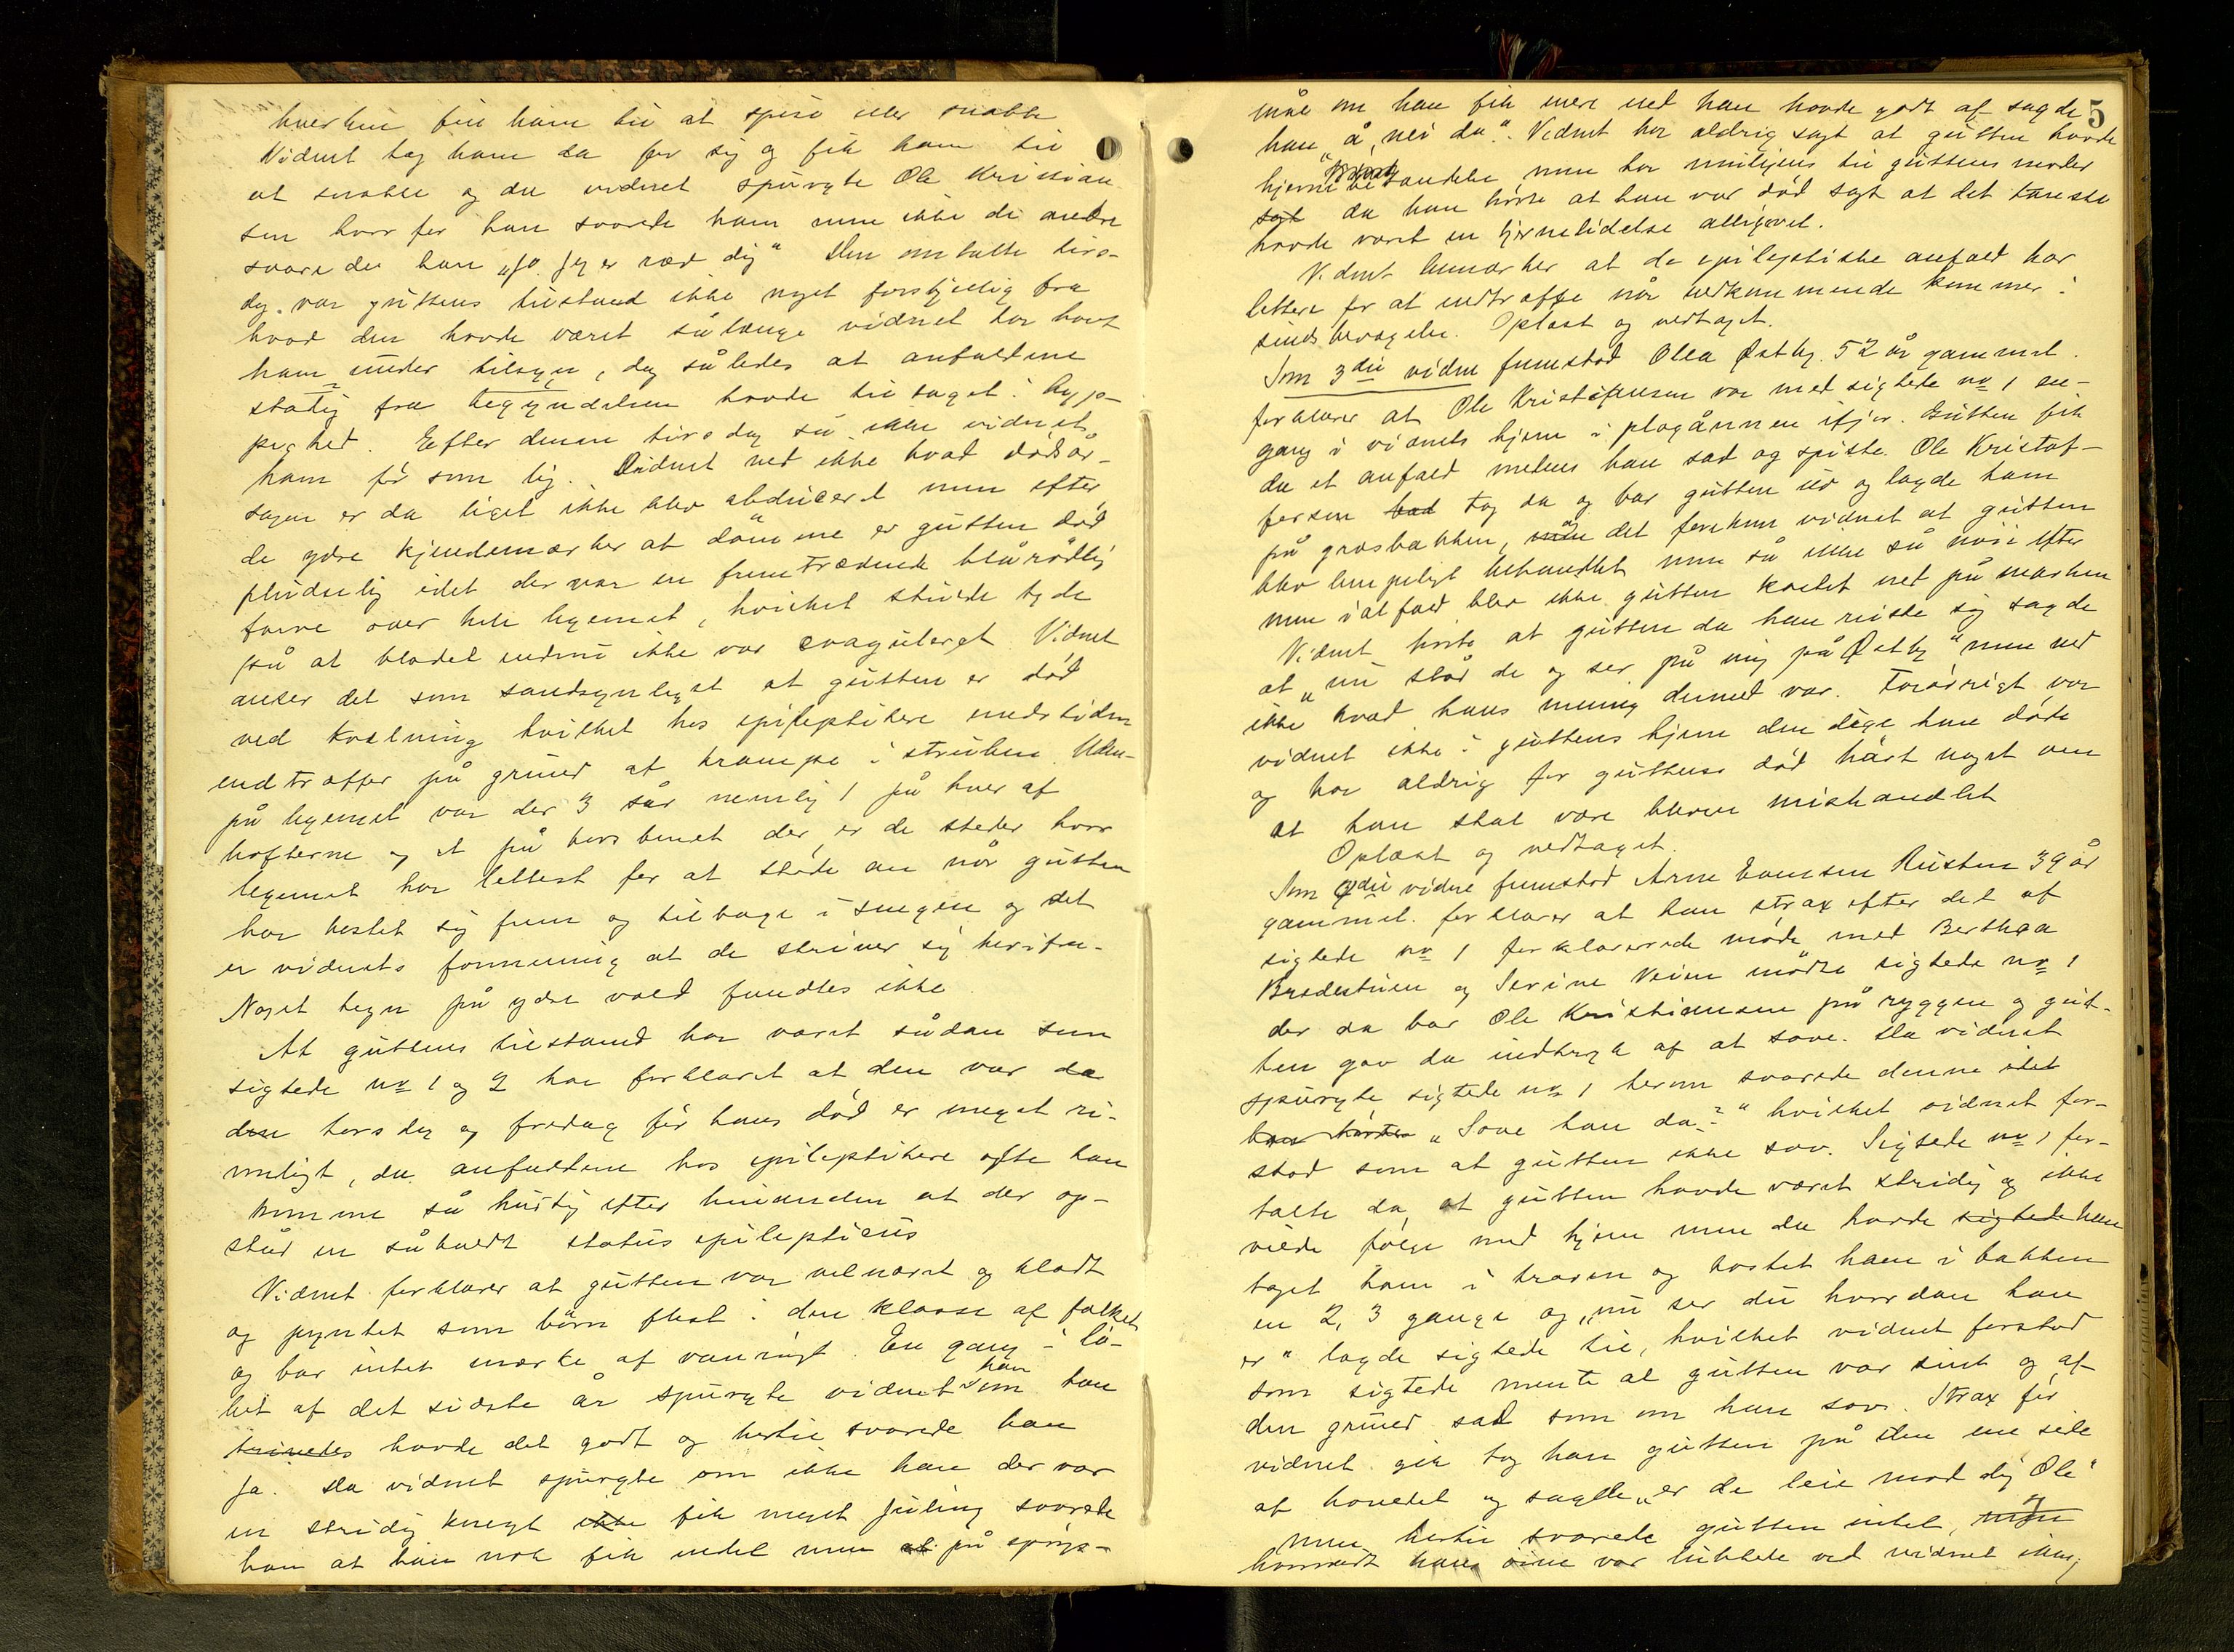 hverken fik ham til at spise eller snakke
Vidnet tog ham da for sig og fik ham til
at snakke og da vidnet spurgte Ole Kristian
sen hvorfor han svarede ham men ikke de andre
svarede han „Jo jeg er ræd dig“ Den omtalte tirs-
dag var guttens tilstand ikke noget forskjellig fra
hvad den havde været sålænge vidnet har havt
ham under tilsyn, dog således at anfaldene
stadig fra begyndelsen havde tiltaget i hyp-
pighed. Efter denne tirsdag så ikke vidnet
ham før som lig. Vidnet ved ikke hvad dødsår-
sagen er da liget ikke blev abduceret men efter
de ydre kjendemærker at dømme er gutten død
pludselig idet der var en fremtrædende blårødlig
farve over hele legemet, hvilket skulde tyde
på at blodet endnu ikke var coaguleret Vidnet
anser det som sandsynligst at gutten er død
ved kvælning hvilket hos epileptikere undertiden
indtræffer på grund af krampe i struben. Uden-
på legemet var der 3 sår nemlig 1 på hver af
hofterne og et på korsbenet der er de steder hvor
legemet har lettest for at støde an når gutten
har kastet sig frem og tilbage i sengen og det
er vidnets formening at de skriver sig herifra.
Noget tegn på ydre vold fandtes ikke.
At guttens tilstand har været sådan som
sigtede no 1 og 2 har forklaret at den var da
den torsdag og fredag før hans død er meget ri-
meligt, da anfaldene hos epileptikere ofte kan
komme så hurtig efter hinanden at der op-
står en såkaldt status epilepticus
Vidnet forklarer at gutten var velnæret og klædt
og pyntet som børn flest i den klasse af folket
og bar intet mærke af vanrøgt. En gang i lø-
bet af det sidste år spurgte vidnet ham om han
trivedes havde det godt og hertil svarede han
ja. Da vidnet spurgte om ikke han der var
en stridig knegt ikke fik meget juling svarede
han at han nok fik endel men at på spørgs-
5
mål om han fik mere end han havde godt af sagde
han „å, nei da“. Vidnet har aldrig sagt at gutten havde
hjernebetændelse men har muligens til guttens moder
sagt da han hørte at han var død sagt at det kanske
havde været en hjernelidelse alligevel.
Vidnet bemærker at de epileptiske anfald har
lettere for at indtræffe når vedkommende kommer i
sindsbevægelse. Oplæst og vedtaget.
Som 3die vidne fremstod Olea Østby. 52 år gammel.
forklarer at Ole Kristofersen var med sigtede no 1 en-
gang i vidnets hjem i plogånnen ifjor. Gutten fik
da et anfald medens han sad og spiste. Ole Kristof-
fersen bad tog da og bar gutten ud og lagde ham
på græsbakken, det forekom vidnet at gutten
blev lempeligt behandlet men så ikke så nøie efter
men ialfald blev ikke gutten kastet ned på marken
Vidnet hørte at gutten da han reiste sig sagde
at „nu står de og ser på mig på Østby“ men ved
ikke hvad hans mening dermed var. Forøvrigt var
vidnet ikke i guttens hjem den dage han døde
og har aldrig før guttens død hørt noget om
at han skal være bleven mishandlet
Oplæst og vedtaget.
Som 4die vidne fremstod Arne Evensen Rusten 39 år
gammel. forklarer at han strax efter det af
sigtede no 1 forklarerede møde med Berthea
Brodestuen og Serine Veien mødte sigtede no 1
der da bar Ole Kristiansen på ryggen og gut-
ten gav da indtryk af at sove. Da vidnet
spurgte sigtede no 1 herom svarede denne idet
han hørtes „Sove han da?“ hvilket vidnet for-
stod som at gutten ikke sov. Sigtede no 1 for-
talte da at gutten havde været stridig og ikke
vilde følge med hjem men da havde sigtede han
taget ham i kraven og kastet ham i bakken
en 2, 3 gange og „nu ser du hvordan han
er“ lagde sigtede til, hvilket vidnet forstod
som sigtede mente at gutten var sint og af
den grund sad som om han sov. Strax før
vidnet gik tog han gutten på den ene side
af hovedet og sagde „er de leie mod dig Ole“
men hertil svarede gutten intet, men og
hvorvidt hans øine var lukkede ved vidnet ikke,